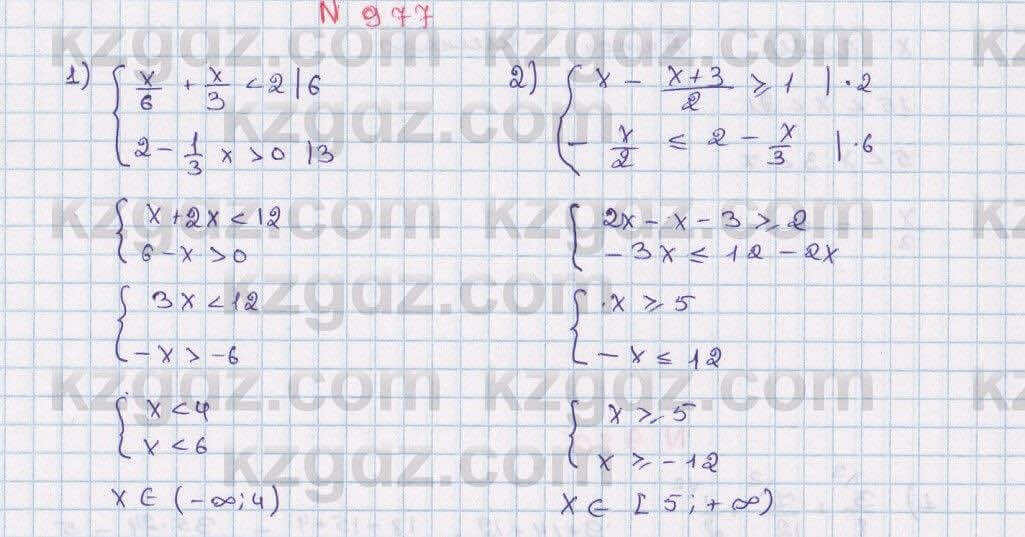 N 977
1) { x/6 + x/3 < 2 | 6
2 - 1/3 x > 0 | 3
{ x + 2x < 12
6 - x > 0
{ 3x < 12
-x > -6
{ x < 4
x < 6
x ∈ (-∞; 4)
2) { x - (x+3)/2 ≥ 1 | · 2
- x/2 ≤ 2 - x/3 | · 6
{ 2x - x - 3 ≥ 2
-3x ≤ 12 - 2x
{ x ≥ 5
-x ≤ 12
{ x ≥ 5
x ≥ -12
x ∈ [5; +∞)
kzgdz.com kzgdz.com
kzgdz.com
kzgdz.com kzgdz.com
kzgdz.com
kzgdz.com kzgdz.com
kzgdz.com